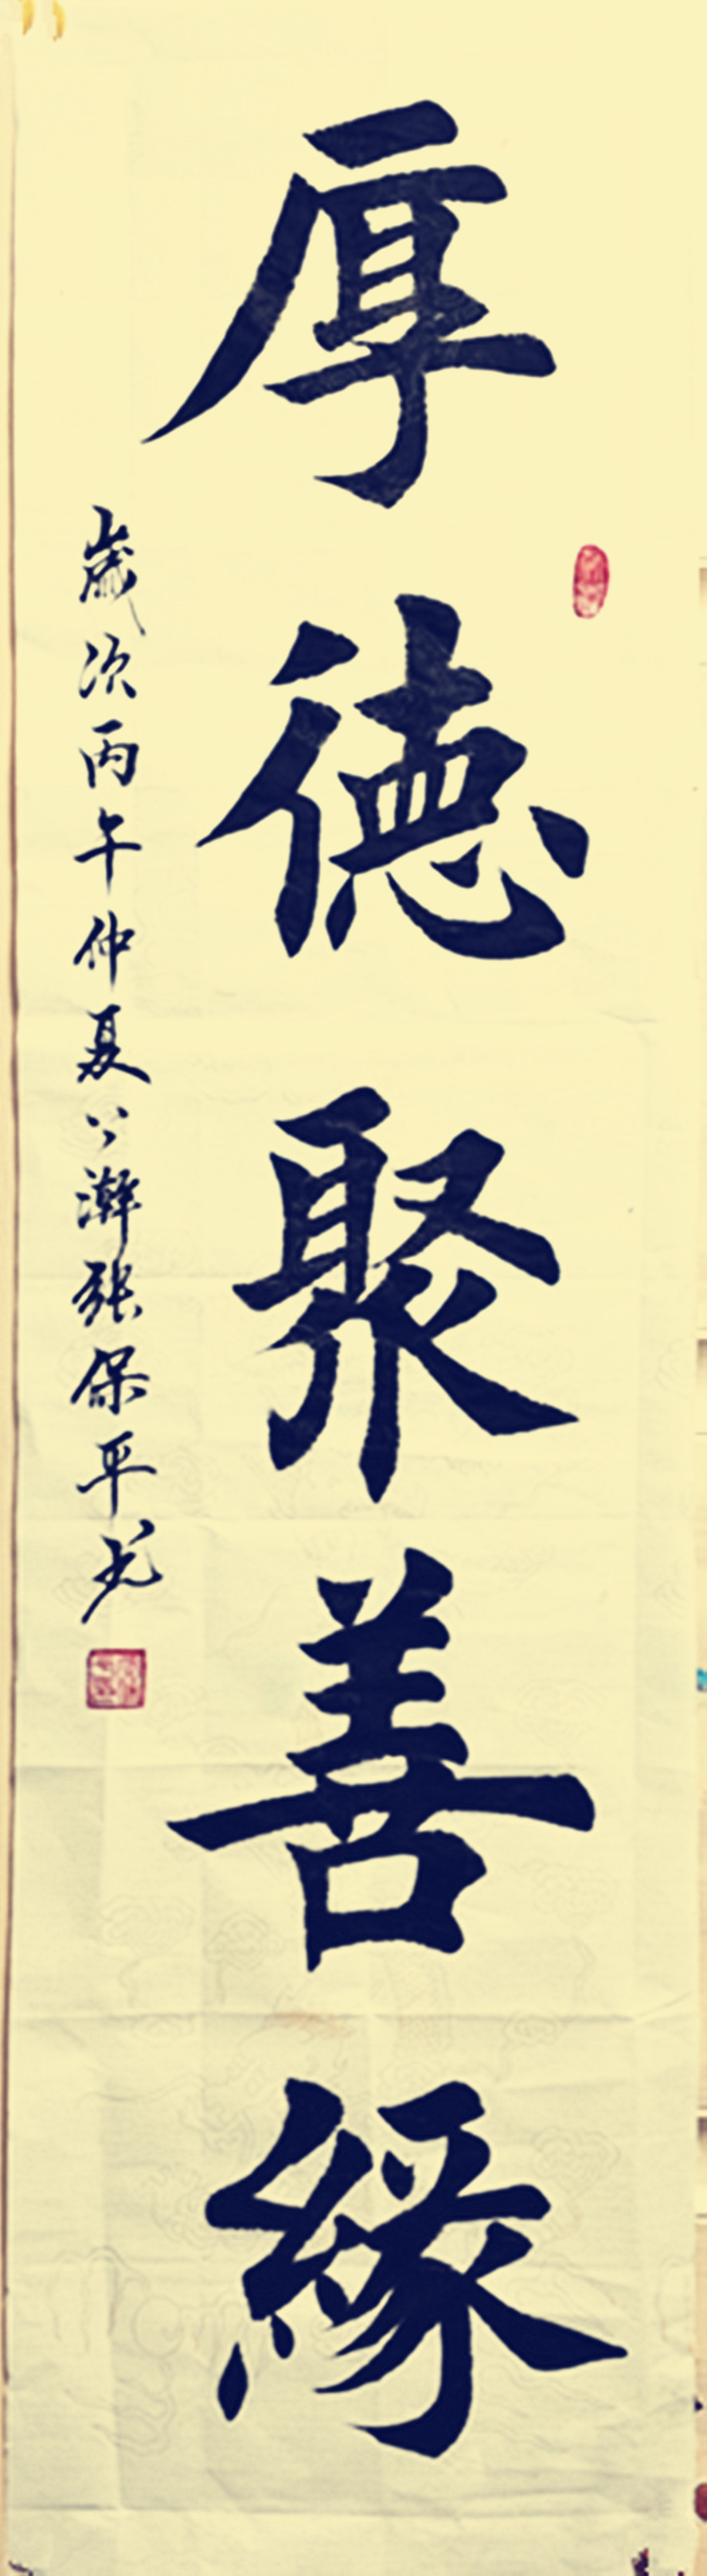 厚德聚善緣
歲次丙午仲夏 张保平书